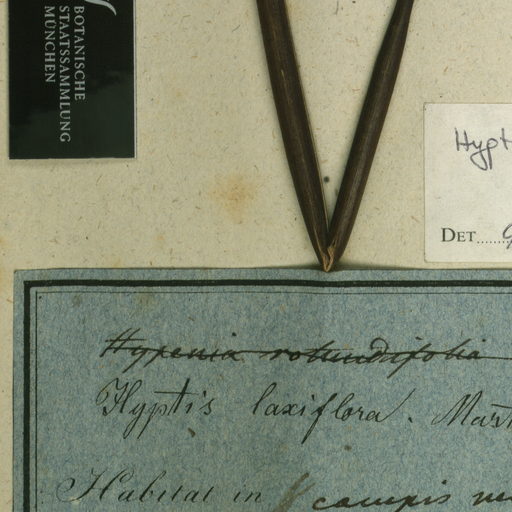 BOTANISCHE
STAATSSAMMLUNG
MÜNCHEN
Hypt
DET.
Hypenia rotundifolia
Hyptis laxiflora. Mart
Habitat in campis